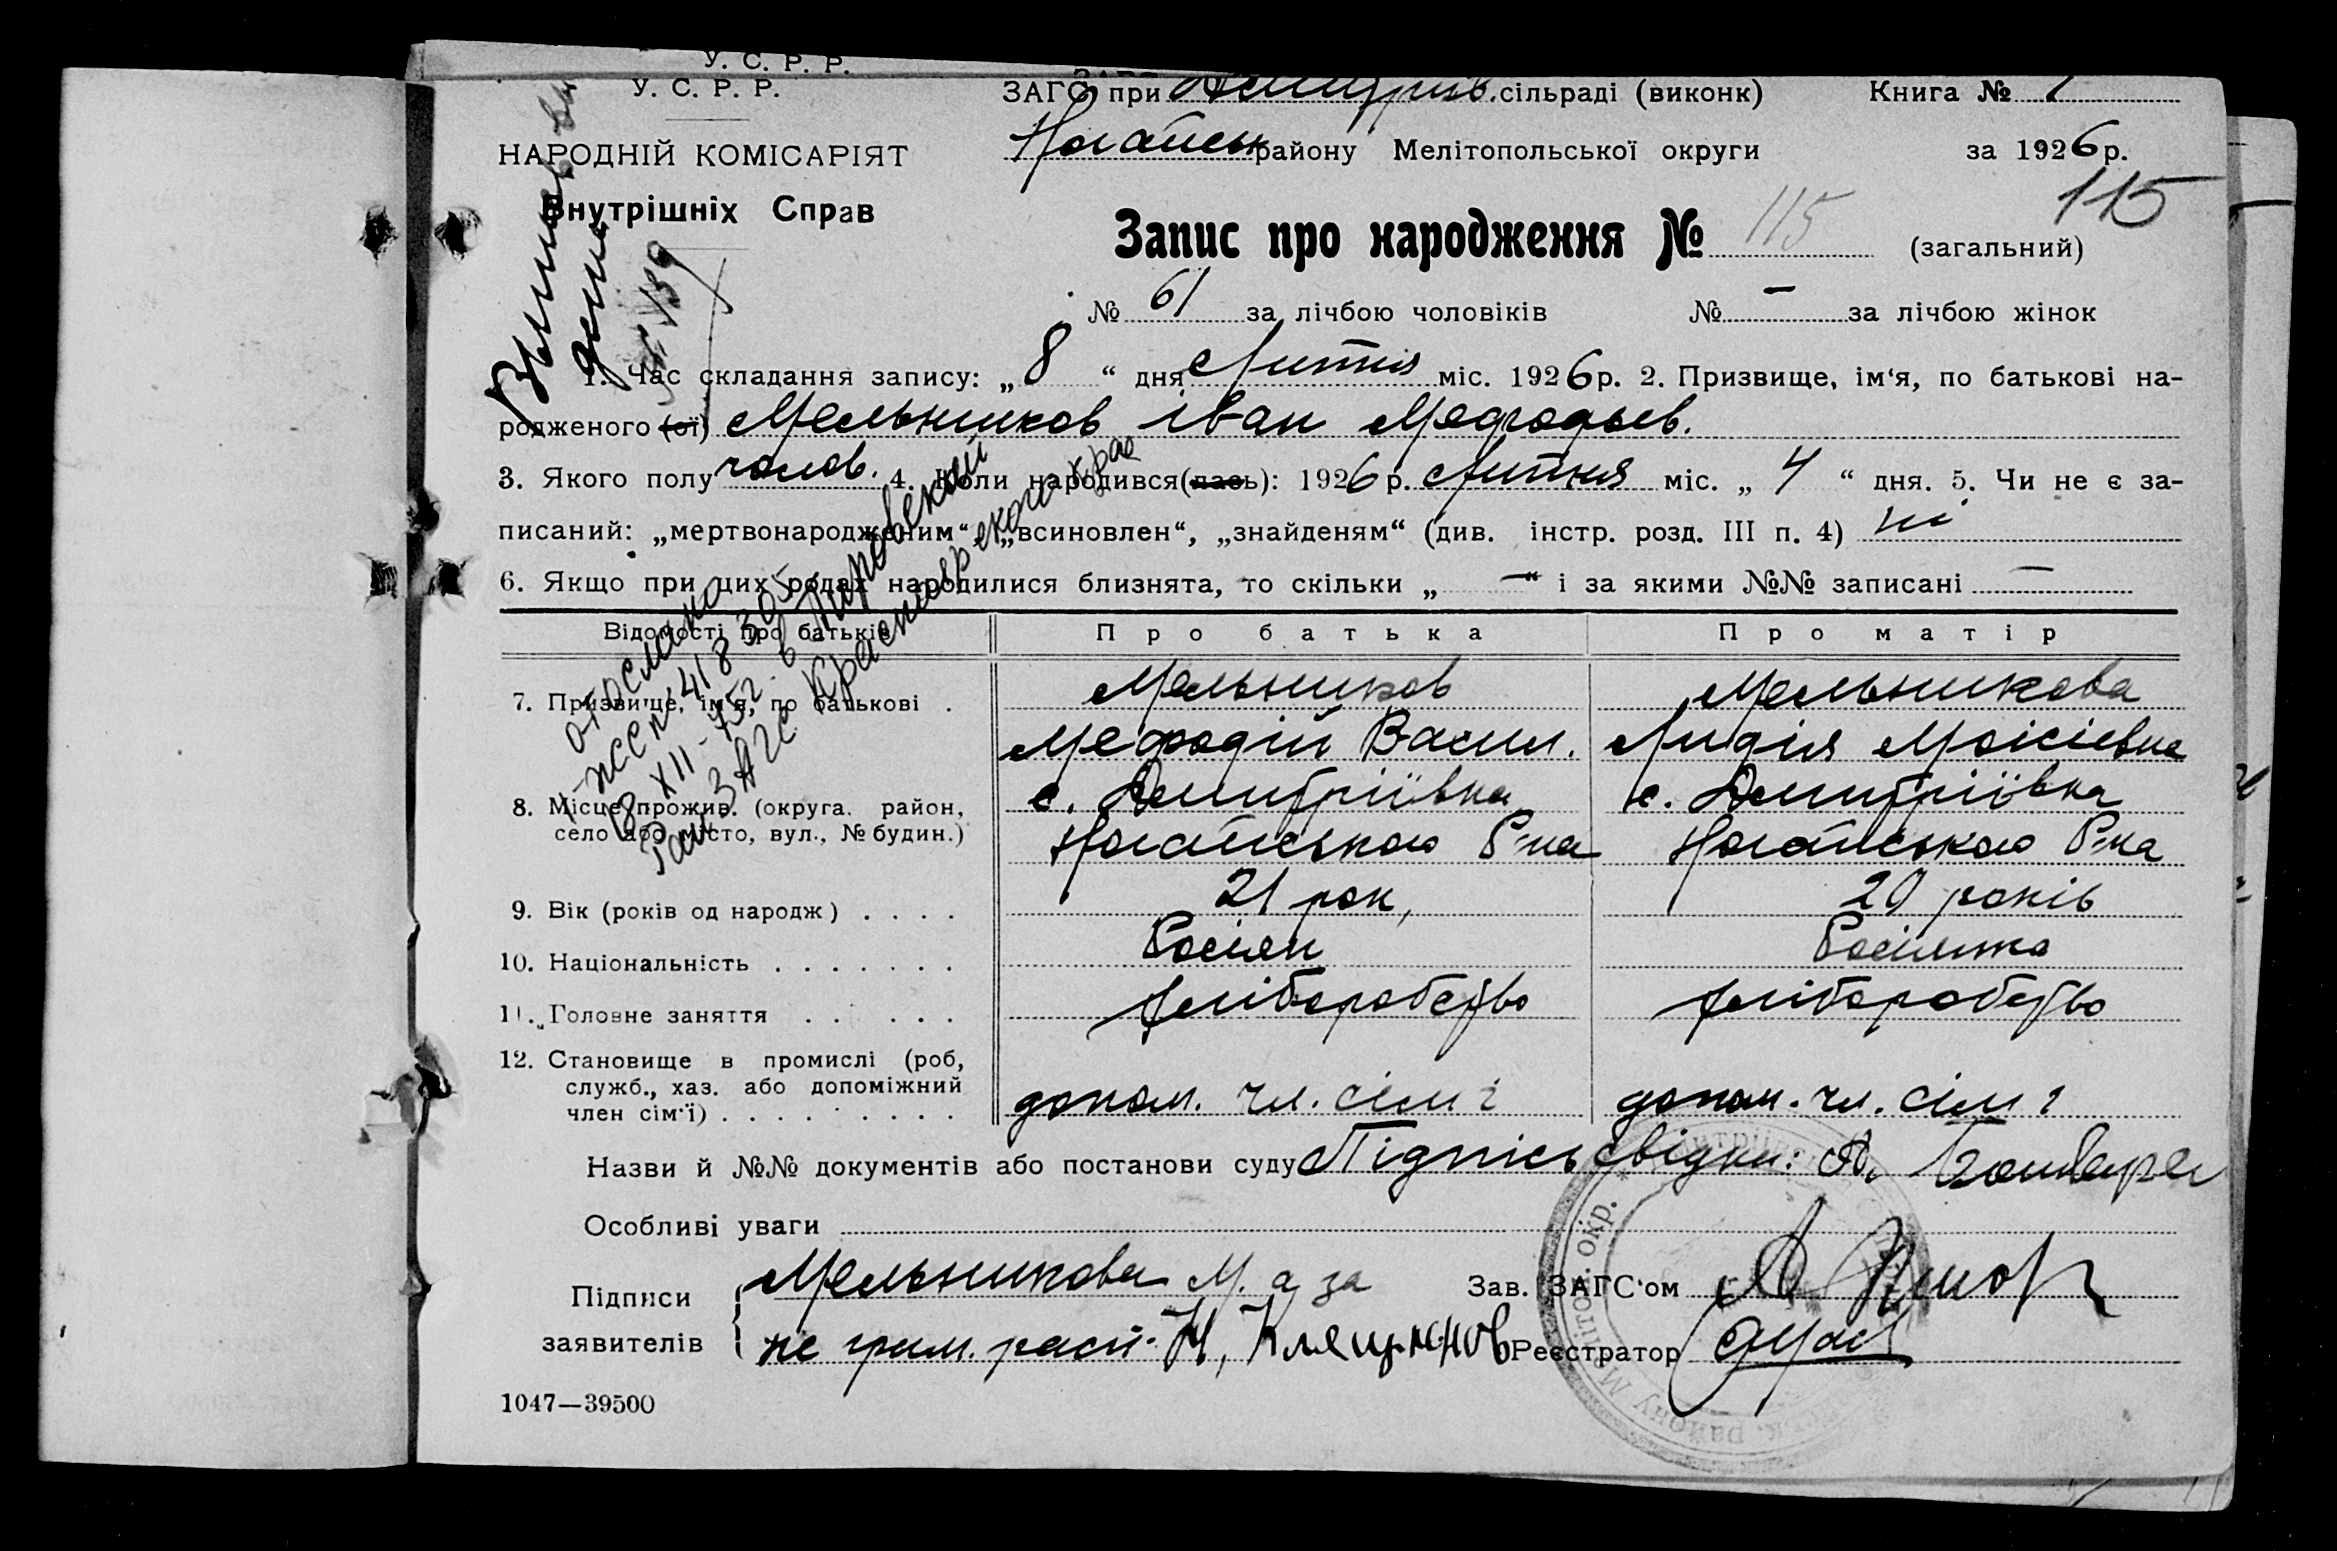 У. С. Р. Р.
У. С. Р. Р.
ЗАГС при Дмитрів. сільраді (виконк) Книга № 1
НАРОДНІЙ КОМІСАРІЯТ
Ногайськ району Мелітопольської округи за 1926 р.
Внутрішніх Справ
115
Запис про народження № 115 (загальний)
№ 61 за лічбою чоловіків № — за лічбою жінок
1. Час складання запису: „ 8 “ дня Лютня міс. 1926 р. 2. Призвище, ім‘я, по батькові на-
родженого (ої) Мельников Іван Мефодьев.
3. Якого полу чолов. 4. Коли народився(лась): 1926 р. Лютня міс. „ 4 “ дня. 5. Чи не є за-
писаний: „мертвонародженим“, „всиновлен“, „знайденям“ (див. інстр. розд. III п. 4) ні
6. Якщо при цих родах народилися близнята, то скільки „ — “ і за якими №№ записані —
Відомості про батьків Про батька Про матір
7. Призвище, ім‘я, по батькові . Мельников Мельникова
Мефодій Васил. Лидія Моісієвна
8. Місце прожив. (округа. район, с. Дмитріївка с. Дмитріївка
село або місто, вул., № будин.) Ногайського Р-на Ногайського Р-на
9. Вік (років од народж) . . . . 21 рок, 20 років
10. Національність . . . . . . . Росіян Росіянка
11. Головне заняття . . . . . хліборобство хліборобство
12. Становище в промислі (роб,
служб., хаз. або допоміжний
член сім‘ї) . . . . . . . . . допом. чл. сімі допом. чл. сімі
Назви й №№ документів або постанови суду Підпісь свідки: А.
Особливі уваги
Підписи Мельникова М. а за Зав. ЗАГС‘ом
заявителів не грам. расп. Н, Реєстратор
1047—39500
отослано
1-эксемп 418305
18 XII-752. в Пировский
Рай. ЗАГС Красноярского края